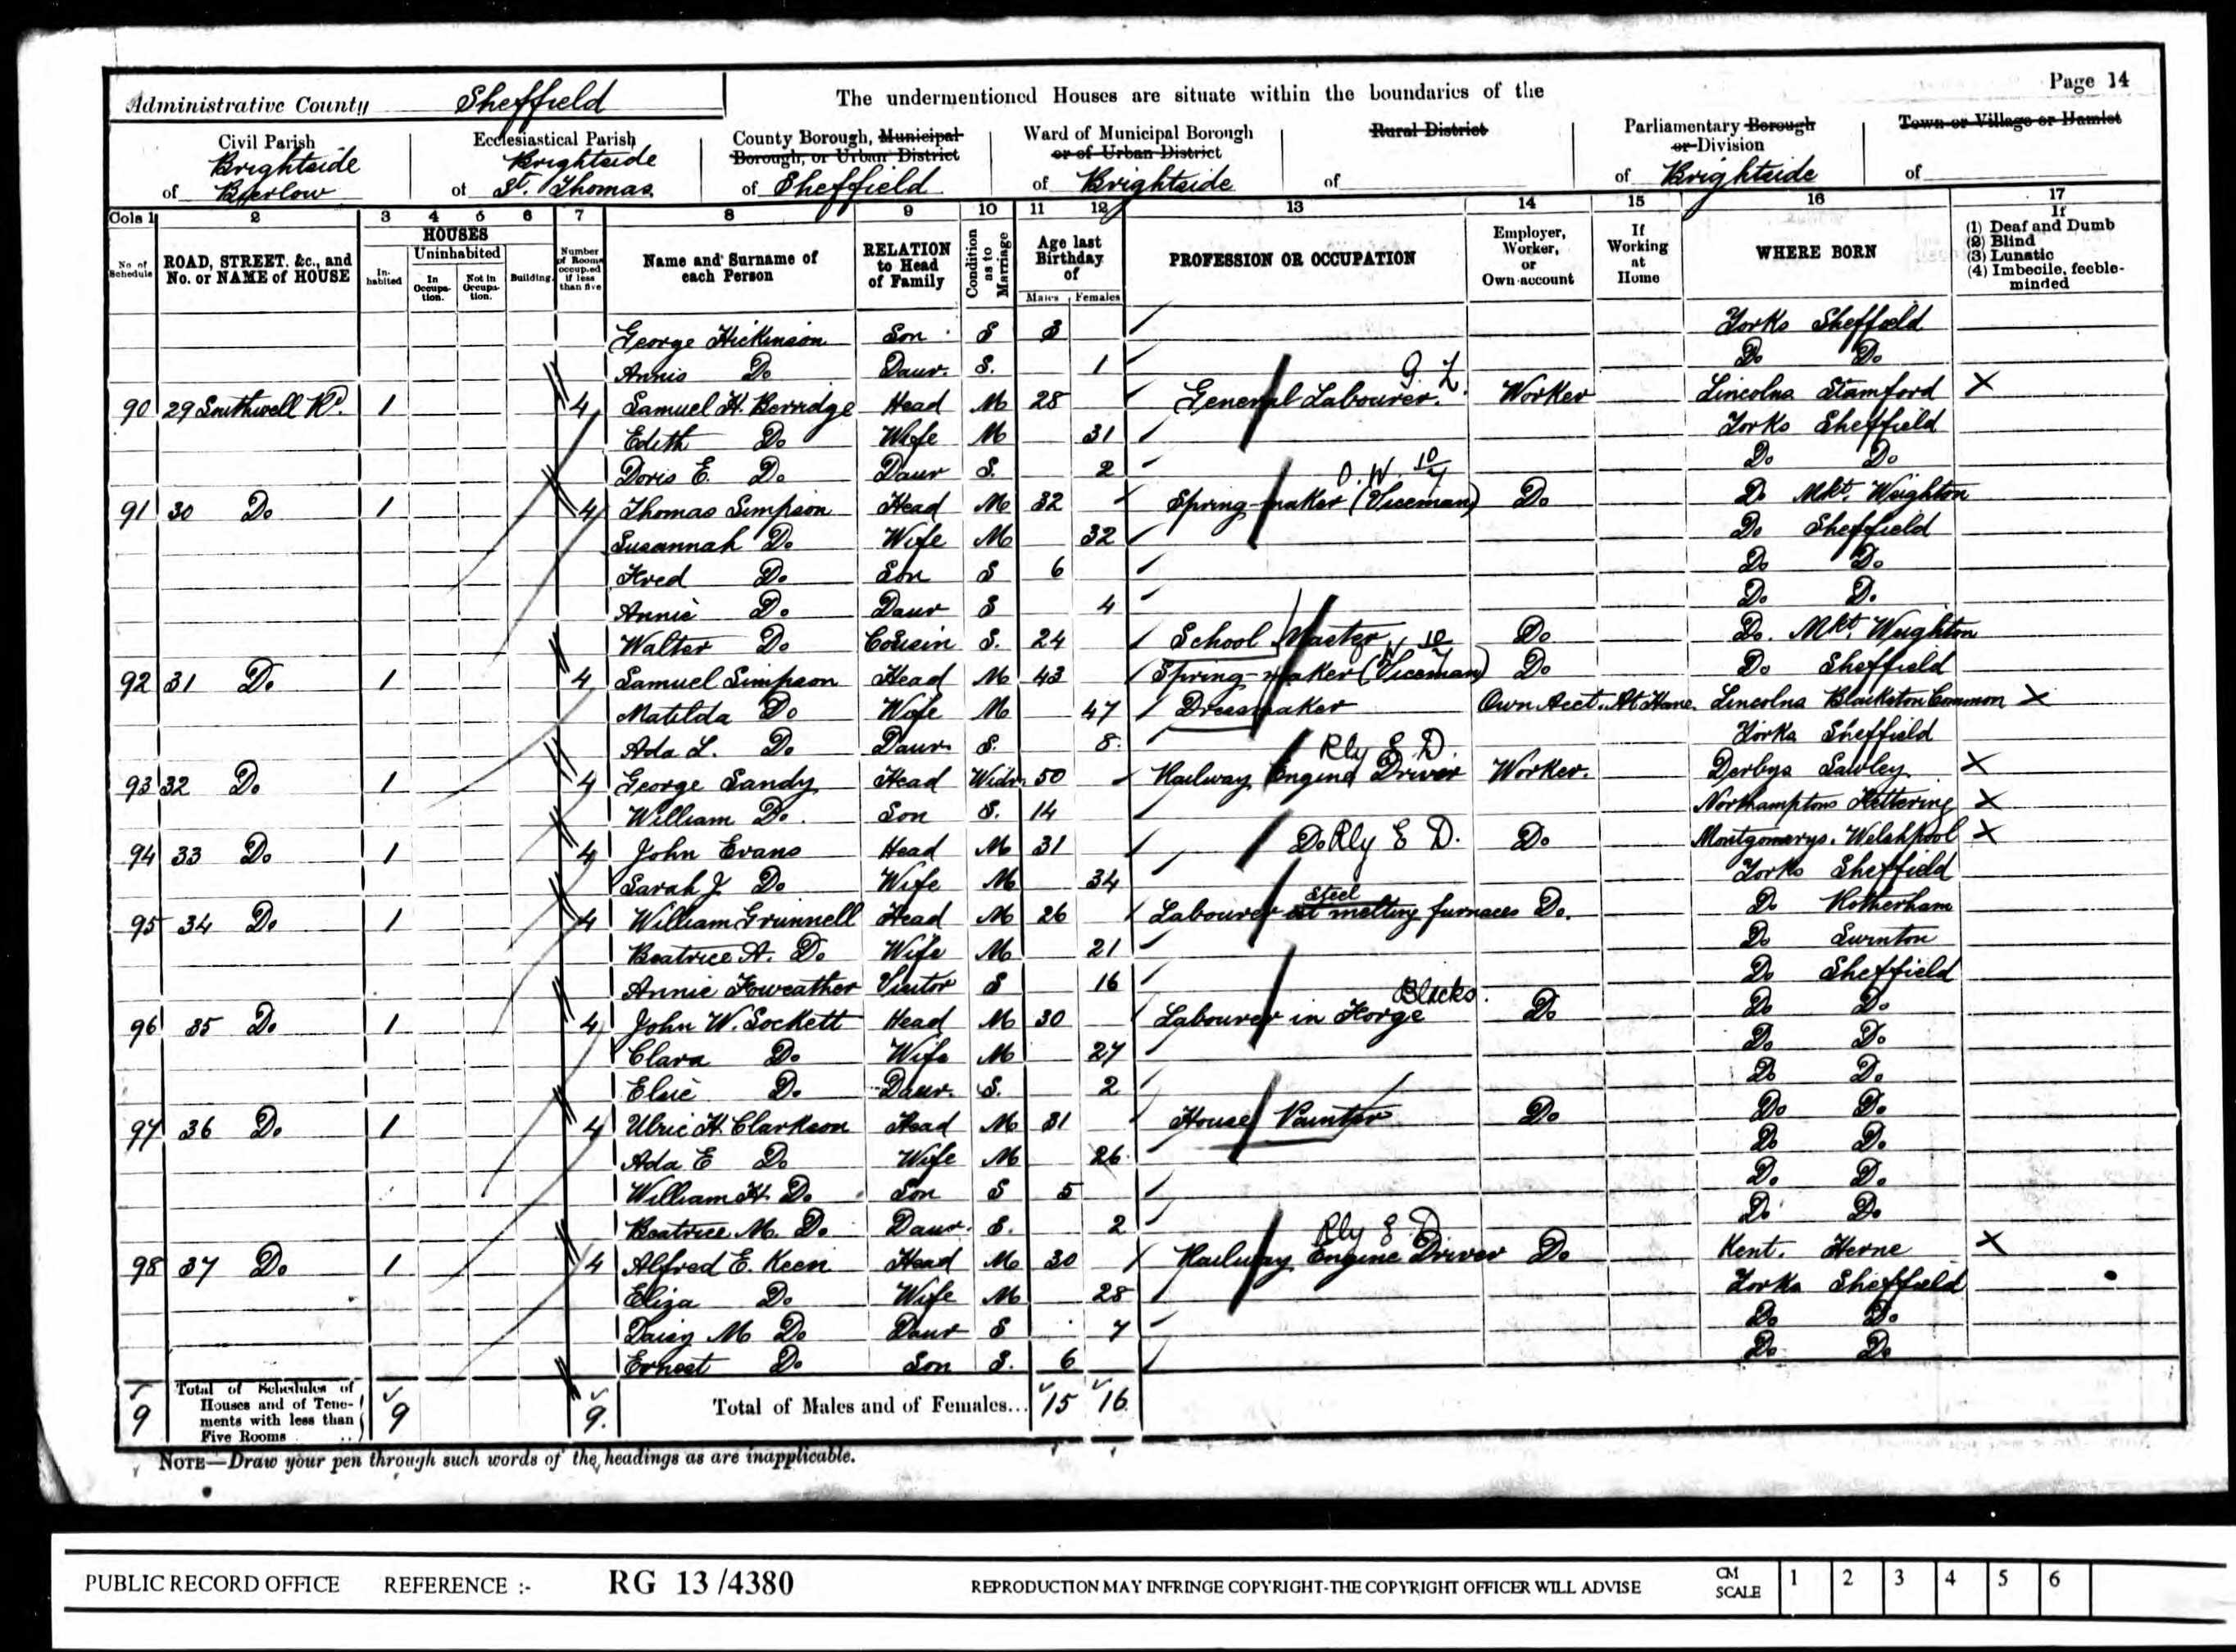 Page 14
Administrative County Sheffield The undermentioned Houses are situate within the boundaries of the
Civil Parish of Brightside Bierlow
Ecclesiastical Parish of Brightside St. Thomas
County Borough, Municipal Borough, or Urban District of Sheffield
Ward of Municipal Borough or of Urban District of Brightside
Rural District of
Parliamentary Borough or Division of Brightside
Town or Village or Hamlet of
Cols 1 2 3 4 5 6 7 8 9 10 11 12 13 14 15 16 17
No. of Schedule
ROAD, STREET, &c., and No. or NAME of HOUSE
HOUSES
Inhabited
Uninhabited
In Occupation.
Not in Occupation.
Building
Number of Rooms occupied if less than five
Name and Surname of each Person
RELATION to Head of Family
Condition as to Marriage
Age last Birthday of
Males Females
PROFESSION OR OCCUPATION
Employer, Worker, or Own account
If Working at Home
WHERE BORN
If (1) Deaf and Dumb (2) Blind (3) Lunatic (4) Imbecile, feeble-minded
George Hickinson Son S 3 Yorks Sheffield
Annis Do Daur. S. 1 Do Do
90 29 Southwell Rd. 1 4 Samuel H. Berridge Head M 28 General Labourer. G. L Worker Lincolns Stamford X
Edith Do Wife M 31 Yorks Sheffield
Doris E. Do Daur S. 2 Do Do
91 30 Do 1 4 Thomas Simpson Head M 32 Spring-maker (Viceman) Do Do Mkt. Weighton
Susannah Do Wife M 32 Do Sheffield
Fred Do Son S 6 Do Do
Annie Do Daur S 4 Do Do
Walter Do Cousin S. 24 School Master Do Do. Mkt. Weighton
92 31 Do 1 4 Samuel Simpson Head M 43 Spring-maker (Viceman) Do Do Sheffield
Matilda Do Wife M 47 Dressmaker Own Acct. At Home. Lincolns Common X
Ada L. Do Daur. S. 8 Yorks Sheffield
93 32 Do 1 4 George Sandy Head Widr. 50 Railway Engine Driver Rly E D. Worker. Derbys Sawley X
William Do. Son S. 14 Northamptons Kettering X
94 33 Do 1 4 John Evans Head M 31 Do Rly E D. Do Montgomerys. Welshpool X
Sarah J Do Wife M 34 Yorks Sheffield
95 34 Do 1 4 William Grunnell Head M 26 Labourer at steel melting furnaces Do. Do Rotherham
Beatrice A. Do Wife M 21 Do Swinton
Annie Foweather Visitor S 16 Do Sheffield
96 35 Do 1 4 John W. Sockett Head M 30 Labourer in Forge Blacks. Do Do Do
Clara Do Wife M 27 Do Do
Elsie Do Daur. S. 2 Do Do
97 36 Do 1 4 Ulric H. Clarkson Head M 31 House Painter Do Do Do
Ada E Do Wife M 26 Do Do
William H. Do Son S 5 Do Do
Beatrice M. Do Daur. S. 2 Do Do
98 37 Do 1 4 Alfred E. Keen Head M 30 Railway Engine Driver Rly E D Do Kent. Herne X
Eliza Do Wife M 28 Yorks Sheffield
Daisy M Do Daur S 7 Do Do
Ernest Do Son S. 6 Do Do
9 Total of Schedules of Houses and of Tenements with less than Five Rooms .. 9 9. Total of Males and of Females... 15 16
NOTE—Draw your pen through such words of the headings as are inapplicable.
PUBLIC RECORD OFFICE REFERENCE :- RG 13 /4380 REPRODUCTION MAY INFRINGE COPYRIGHT-THE COPYRIGHT OFFICER WILL ADVISE CM SCALE 1 2 3 4 5 6